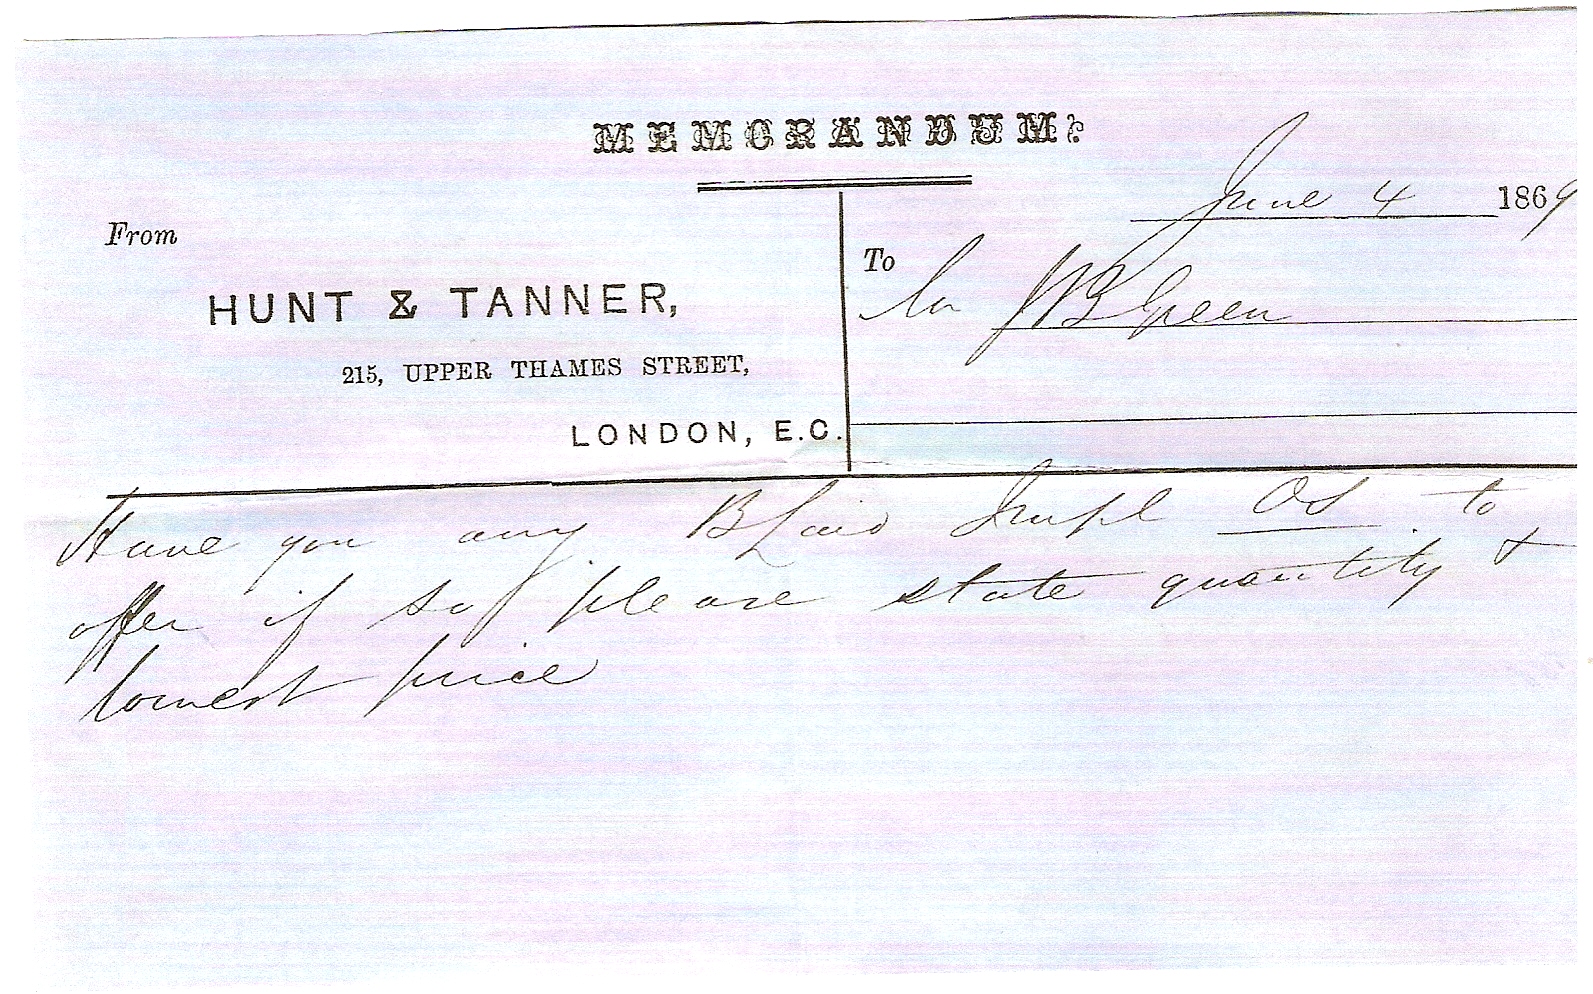 MEMORANDUM.
June 4 1869
From
To
HUNT & TANNER,
J B Green
215, UPPER THAMES STREET,
LONDON, E.C.
Have you any B Laid Impl Os to
offer if so please state quantity &
lowest price